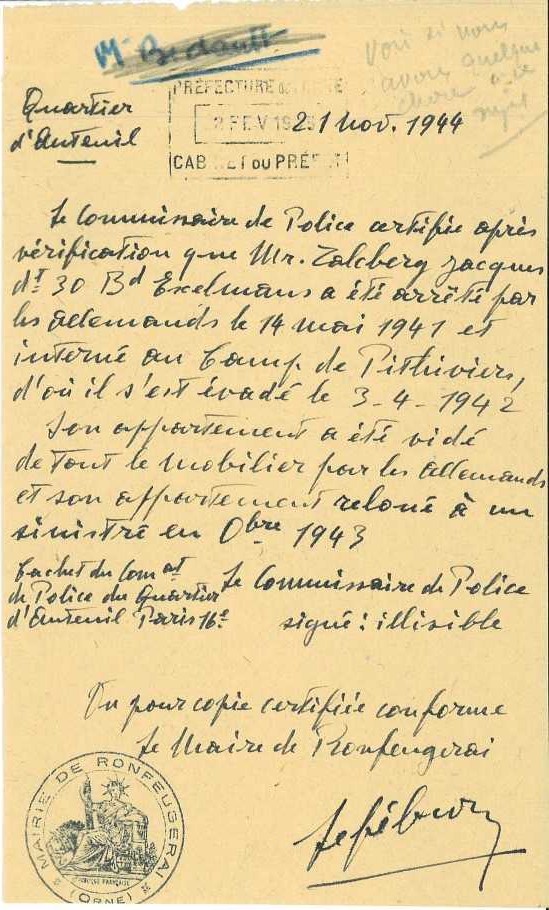 Mr Bidault
Voir si nous
avons quelque
chose à ce
sujet
PRÉFECTURE DE L'ORNE
2 FEV 19
CABINET DU PRÉFET
Quartier
d'Auteuil
21 Nov. 1944
Le Commissaire de Police certifie après
vérification que Mr. Zalcberg Jacques
dt 30 Bd Exelmans a été arrêté par
les allemands le 14 mai 1941 et
interné au Camp de Pithiviers,
d'où il s'est évadé le 3-4-1942
Son appartement a été vidé
de tout le mobilier par les allemands
et son appartement reloué à un
sinistré en Obre 1943
Cachet du Comat
de Police du Quartier
d'Auteuil Paris 16e
Le Commissaire de Police
signé : illisible
Vu pour copie certifiée conforme
Le Maire de Ronfeugerai
Lefébure
MAIRIE DE RONFEUGERAI
(ORNE)
RÉPUBLIQUE FRANÇAISE